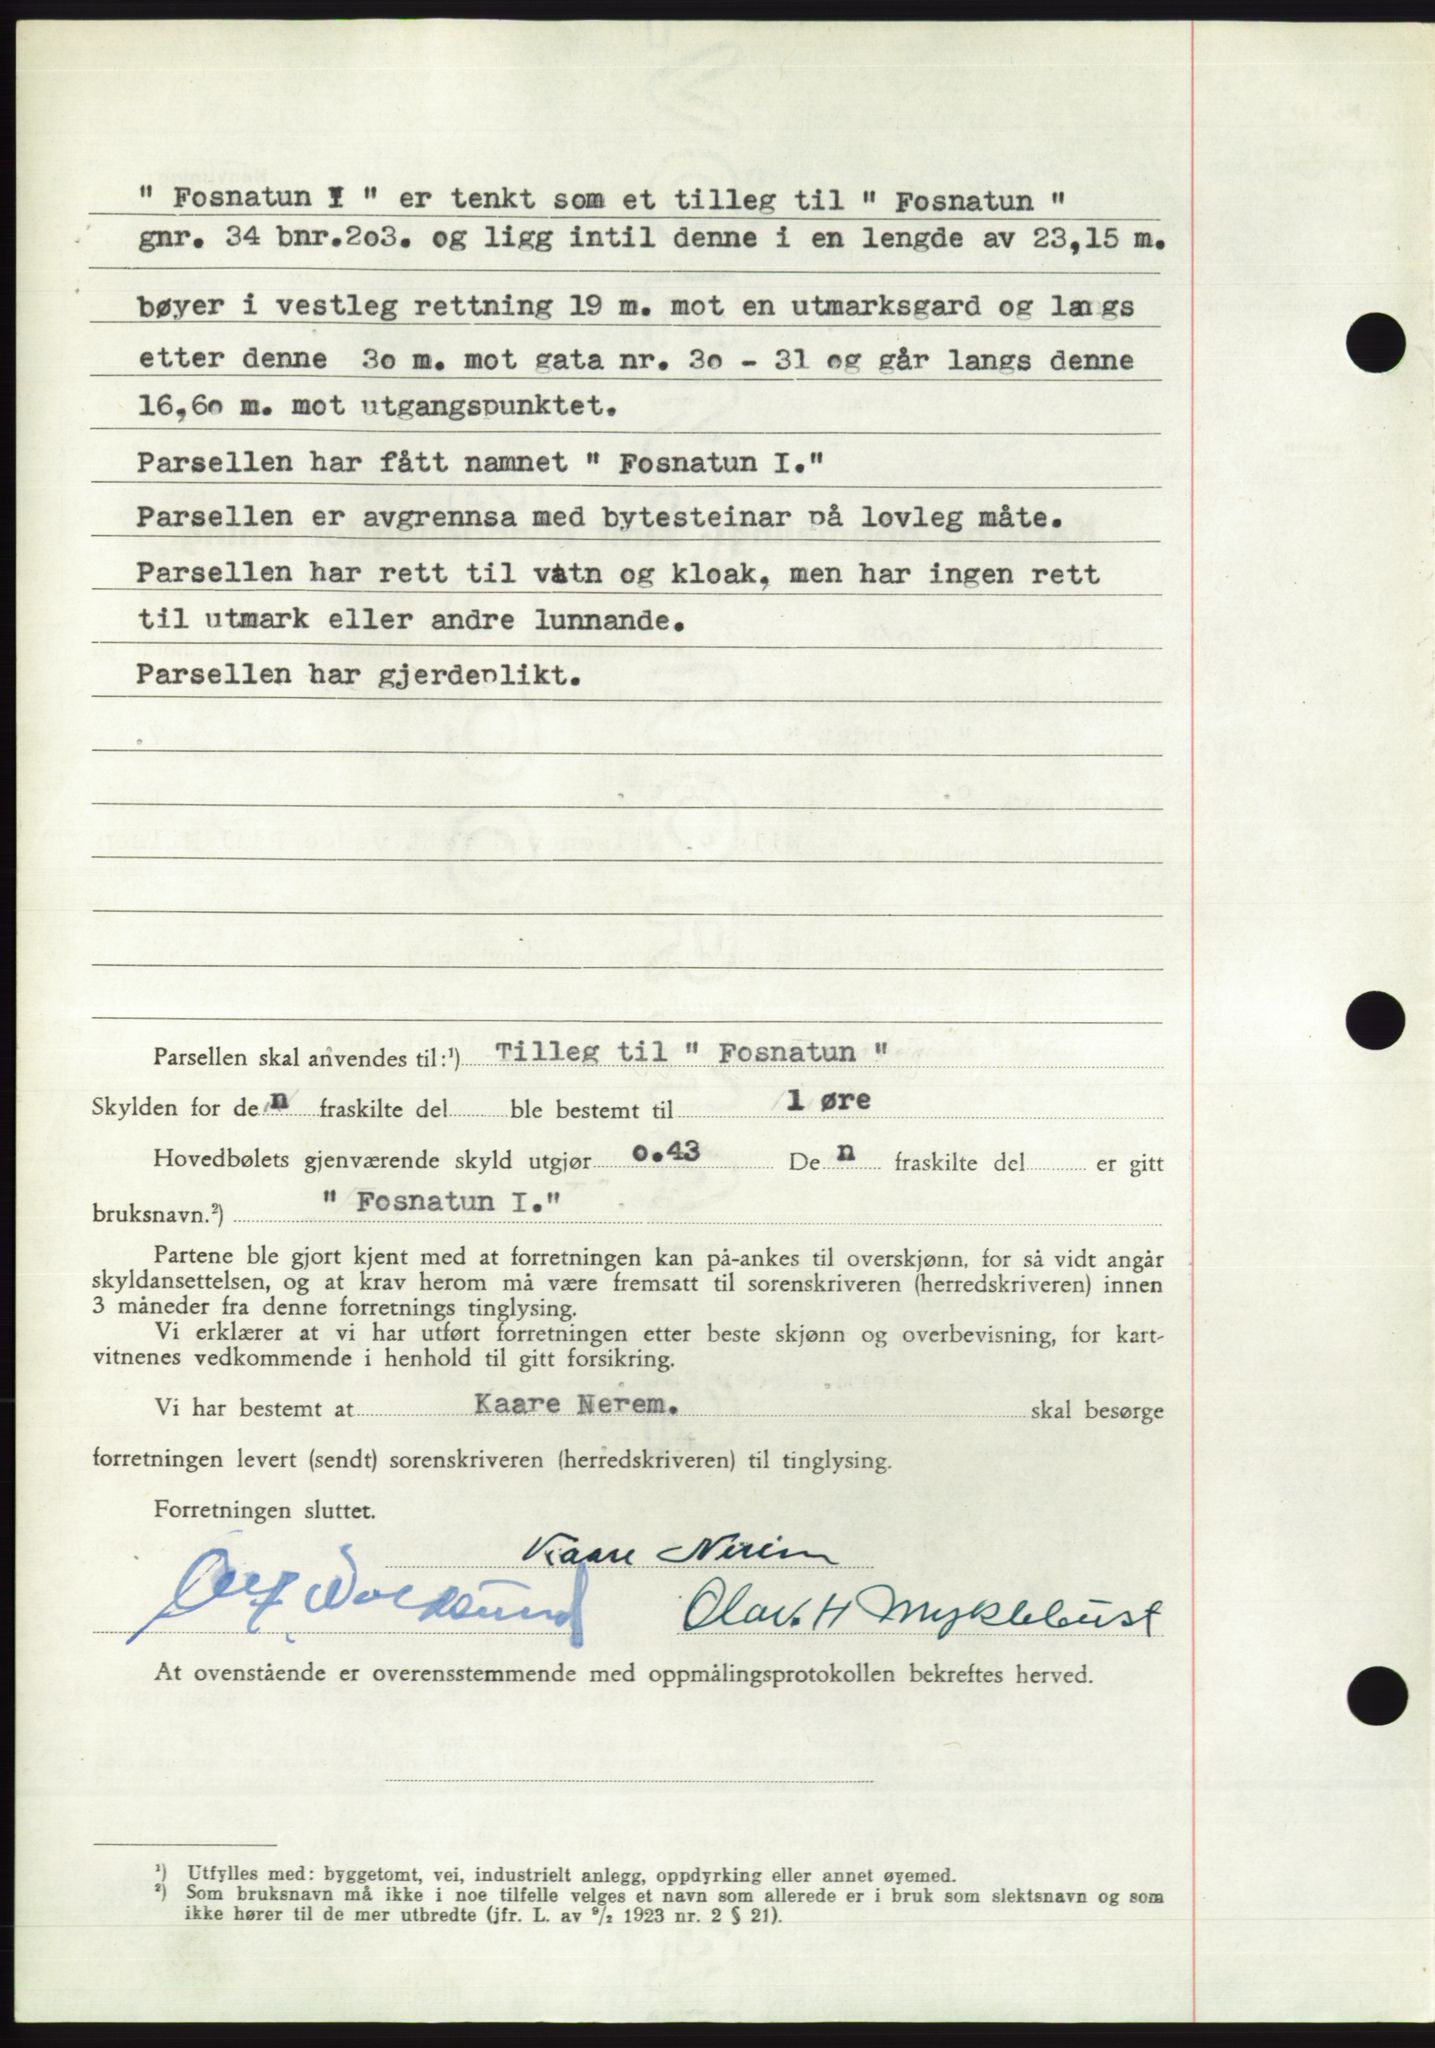 " Fosnatun I " er tenkt som et tilleg til " Fosnatun "
gnr. 34 bnr.203. og ligg intil denne i en lengde av 23,15 m.
bøyer i vestleg rettning 19 m. mot en utmarksgard og langs
etter denne 30 m. mot gata nr. 30 - 31 og går langs denne
16,60 m. mot utgangspunktet.
Parsellen har fått namnet " Fosnatun I."
Parsellen er avgrennsa med bytesteinar på lovleg måte.
Parsellen har rett til vatn og kloak, men har ingen rett
til utmark eller andre lunnande.
Parsellen har gjerdeplikt.
Parsellen skal anvendes til:¹) Tilleg til " Fosnatun "
Skylden for den fraskilte del ble bestemt til 1 øre
Hovedbølets gjenværende skyld utgjør 0.43 Den fraskilte del er gitt
bruksnavn.²) " Fosnatun I."
Partene ble gjort kjent med at forretningen kan på-ankes til overskjønn, for så vidt angår
skyldansettelsen, og at krav herom må være fremsatt til sorenskriveren (herredskriveren) innen
3 måneder fra denne forretnings tinglysing.
Vi erklærer at vi har utført forretningen etter beste skjønn og overbevisning, for kart-
vitnenes vedkommende i henhold til gitt forsikring.
Vi har bestemt at Kaare Nerem. skal besørge
forretningen levert (sendt) sorenskriveren (herredskriveren) til tinglysing.
Forretningen sluttet.
Kaare Nerem
Olav H Myklebust
At ovenstående er overensstemmende med oppmålingsprotokollen bekreftes herved.
¹) Utfylles med: byggetomt, vei, industrielt anlegg, oppdyrking eller annet øyemed.
²) Som bruksnavn må ikke i noe tilfelle velges et navn som allerede er i bruk som slektsnavn og som
ikke hører til de mer utbredte (jfr. L. av ⁹/₂ 1923 nr. 2 § 21).